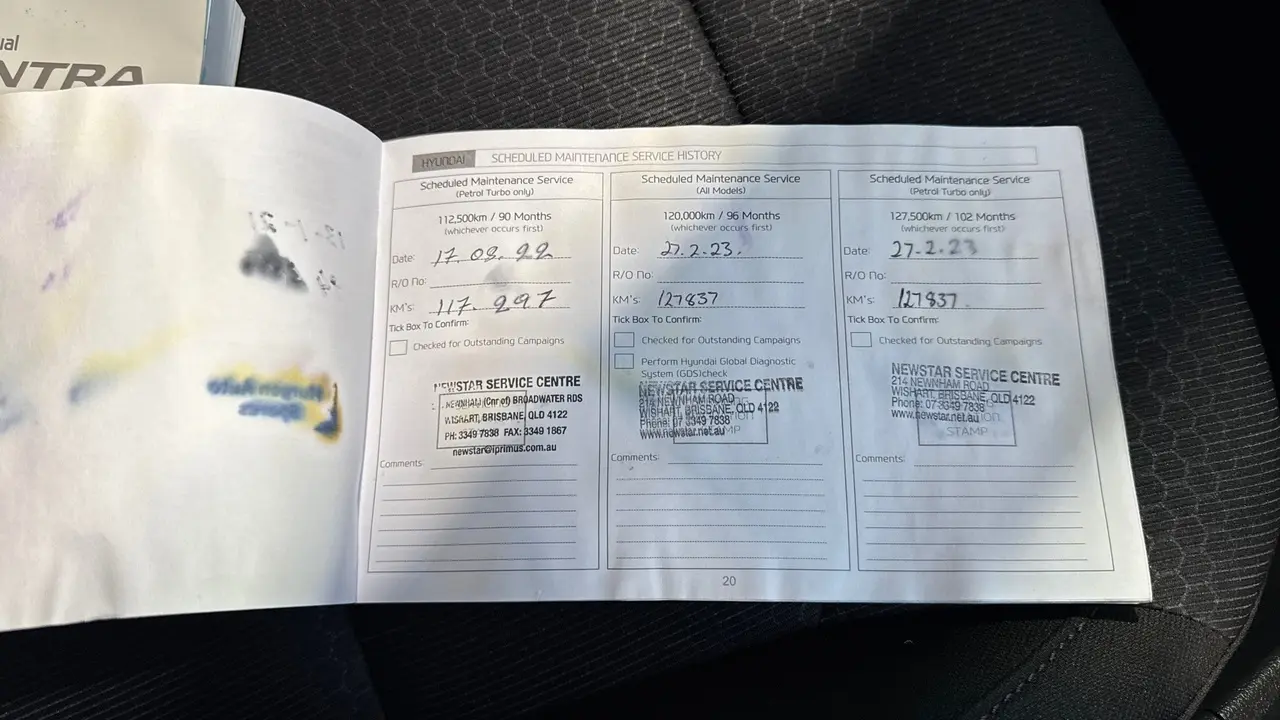 ual
NTRA
HYUNDAI SCHEDULED MAINTENANCE SERVICE HISTORY
Scheduled Maintenance Service
(Petrol Turbo only)
112,500km / 90 Months
(whichever occurs first)
Date: 17.08.22
R/O No:
KM's: 117.297
Tick Box To Confirm:
Checked for Outstanding Campaigns
NEWSTAR SERVICE CENTRE
NEWNHAM (Cnr of) BROADWATER RDS
WISHART, BRISBANE, QLD 4122
PH: 3349 7838 FAX: 3349 1867
newstar@iprimus.com.au
Comments:
Scheduled Maintenance Service
(All Models)
120,000km / 96 Months
(whichever occurs first)
Date: 27.2.23.
R/O No:
KM's: 127837
Tick Box To Confirm:
Checked for Outstanding Campaigns
Perform Hyundai Global Diagnostic
System (GDS)check
NEWSTAR SERVICE CENTRE
214 NEWNHAM ROAD
WISHART, BRISBANE, QLD 4122
Phone: 07 3349 7838
www.newstar.net.au
STAMP
Comments:
Scheduled Maintenance Service
(Petrol Turbo only)
127,500km / 102 Months
(whichever occurs first)
Date: 27-2-23
R/O No:
KM's: 127837.
Tick Box To Confirm:
Checked for Outstanding Campaigns
NEWSTAR SERVICE CENTRE
214 NEWNHAM ROAD
WISHART, BRISBANE, QLD 4122
Phone: 07 3349 7838
www.newstar.net.au
STAMP
Comments:
20